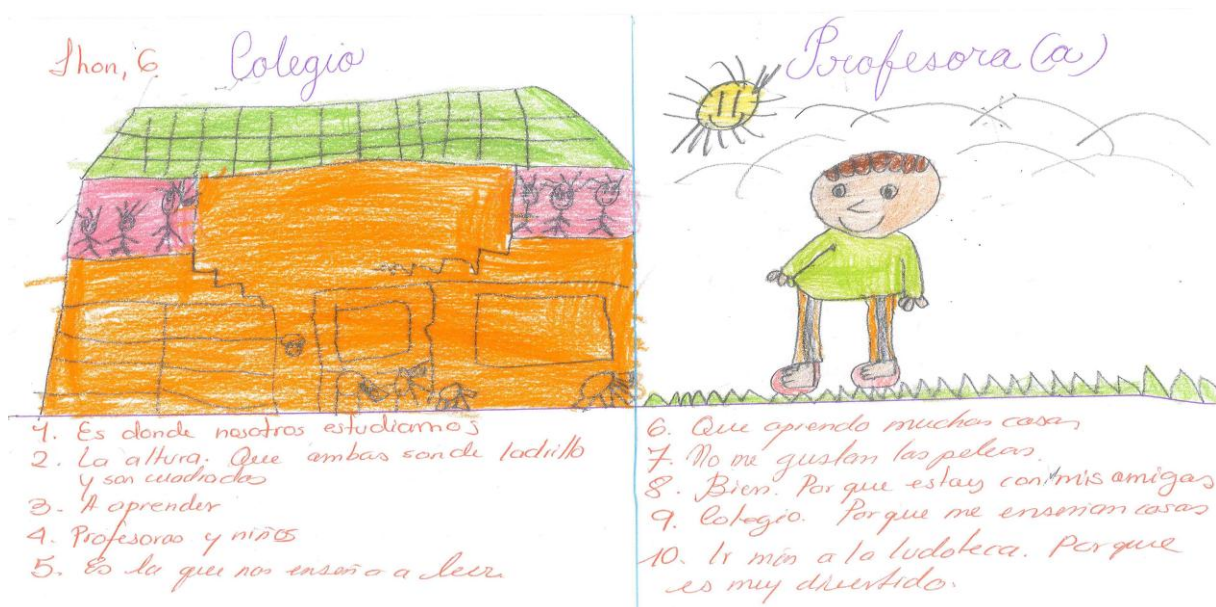 Jhon, 6
Colegio
1. Es donde nosotros estudiamos
2. La altura. Que ambas son de ladrillo
y son cuadradas
3. A aprender
4. Profesoras y niños
5. Es la que nos enseña a leer
Profesora(a)
6. Que aprendo muchas cosas
7. No me gustan las peleas.
8. Bien. Porque estoy con mis amigas
9. Colegio. Porque me enseñan cosas
10. Ir más a la ludoteca. Porque
es muy divertido.